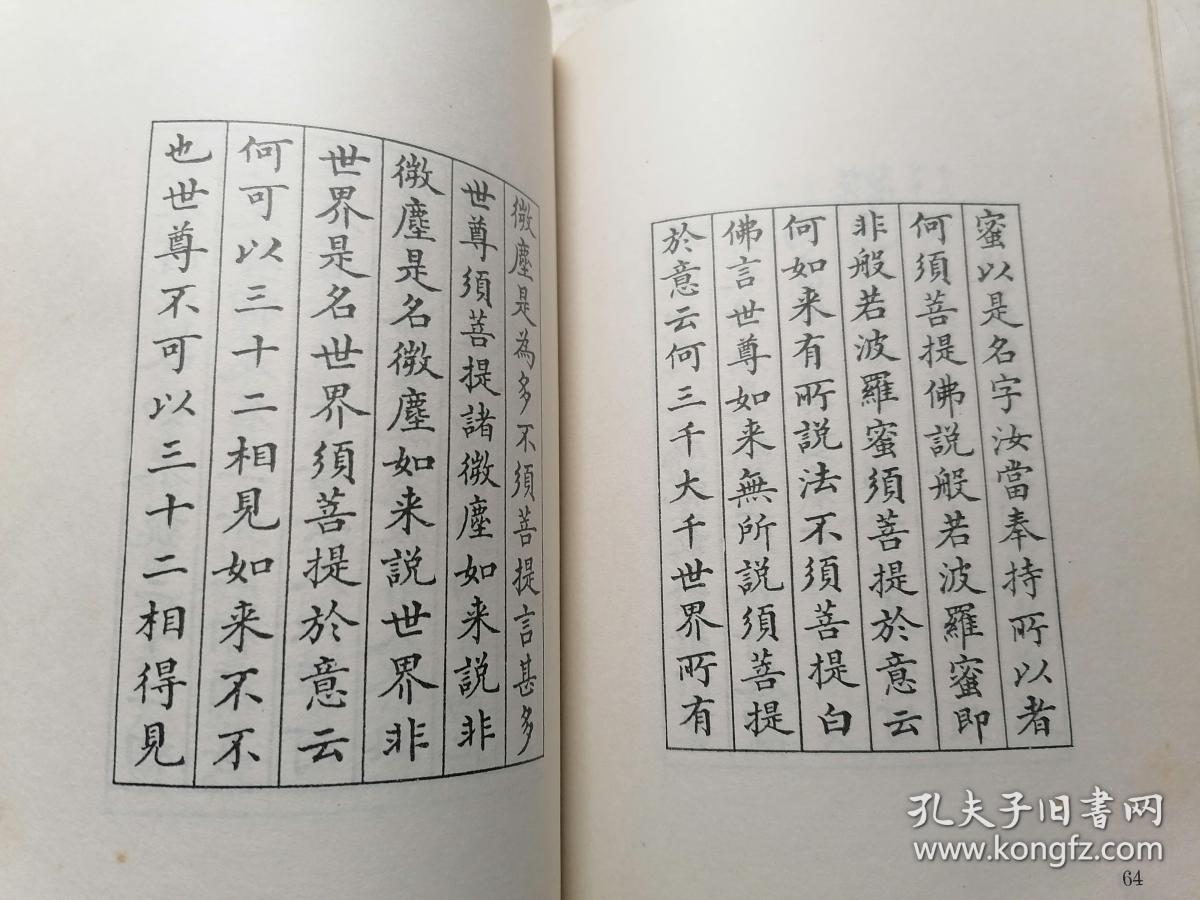 蜜以是名字汝當奉持所以者
何須菩提佛說般若波羅蜜即
非般若波羅蜜須菩提於意云
何如来有所說法不須菩提白
佛言世尊如来無所說須菩提
於意云何三千大千世界所有
微塵是為多不須菩提言甚多
世尊須菩提諸微塵如来說非
微塵是名微塵如来說世界非
世界是名世界須菩提於意云
何可以三十二相見如来不不
也世尊不可以三十二相得見
64
孔夫子旧书网
www.kongfz.com